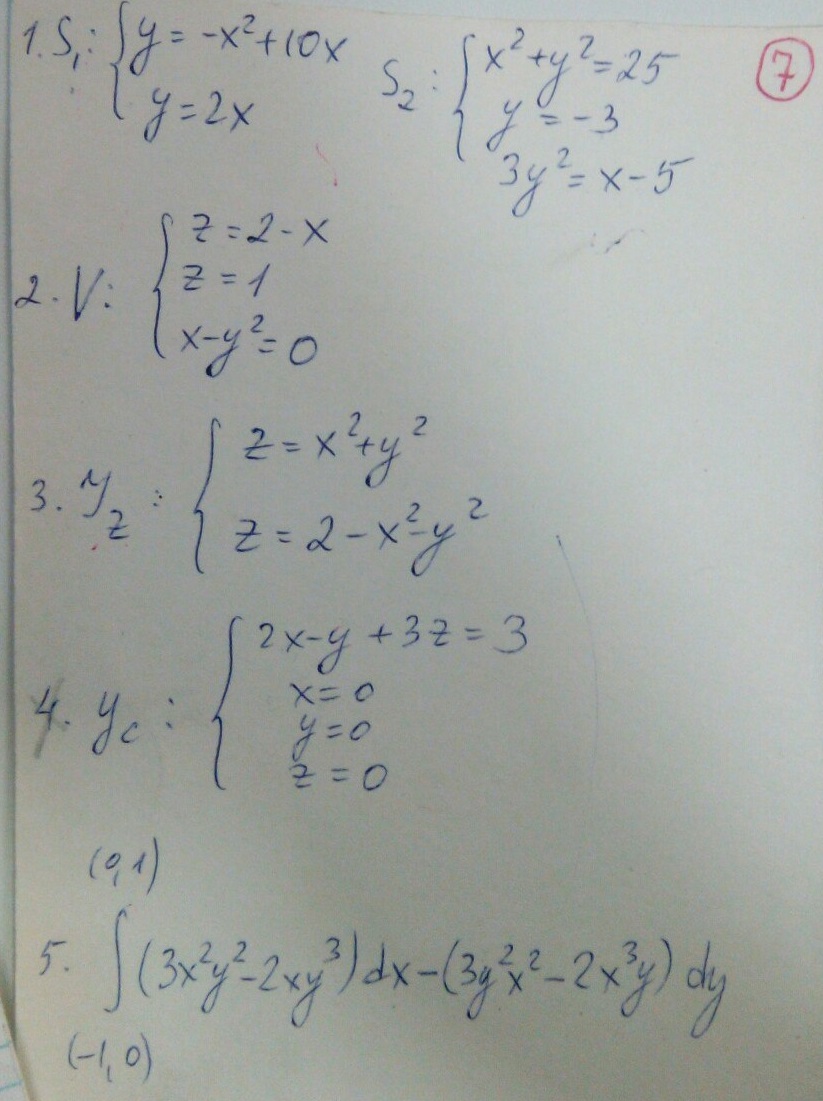 1. S₁: { y = -x² + 10x
y = 2x
S₂: { x² + y² = 25
y = -3
3y² = x - 5
7
2. V: { z = 2 - x
z = 1
x - y² = 0
3. Y_z : { z = x² + y²
z = 2 - x² - y²
4. y_c : { 2x - y + 3z = 3
x = 0
y = 0
z = 0
(0, 1)
5. ∫ (3x²y² - 2xy³) dx - (3y²x² - 2x³y) dy
(-1, 0)